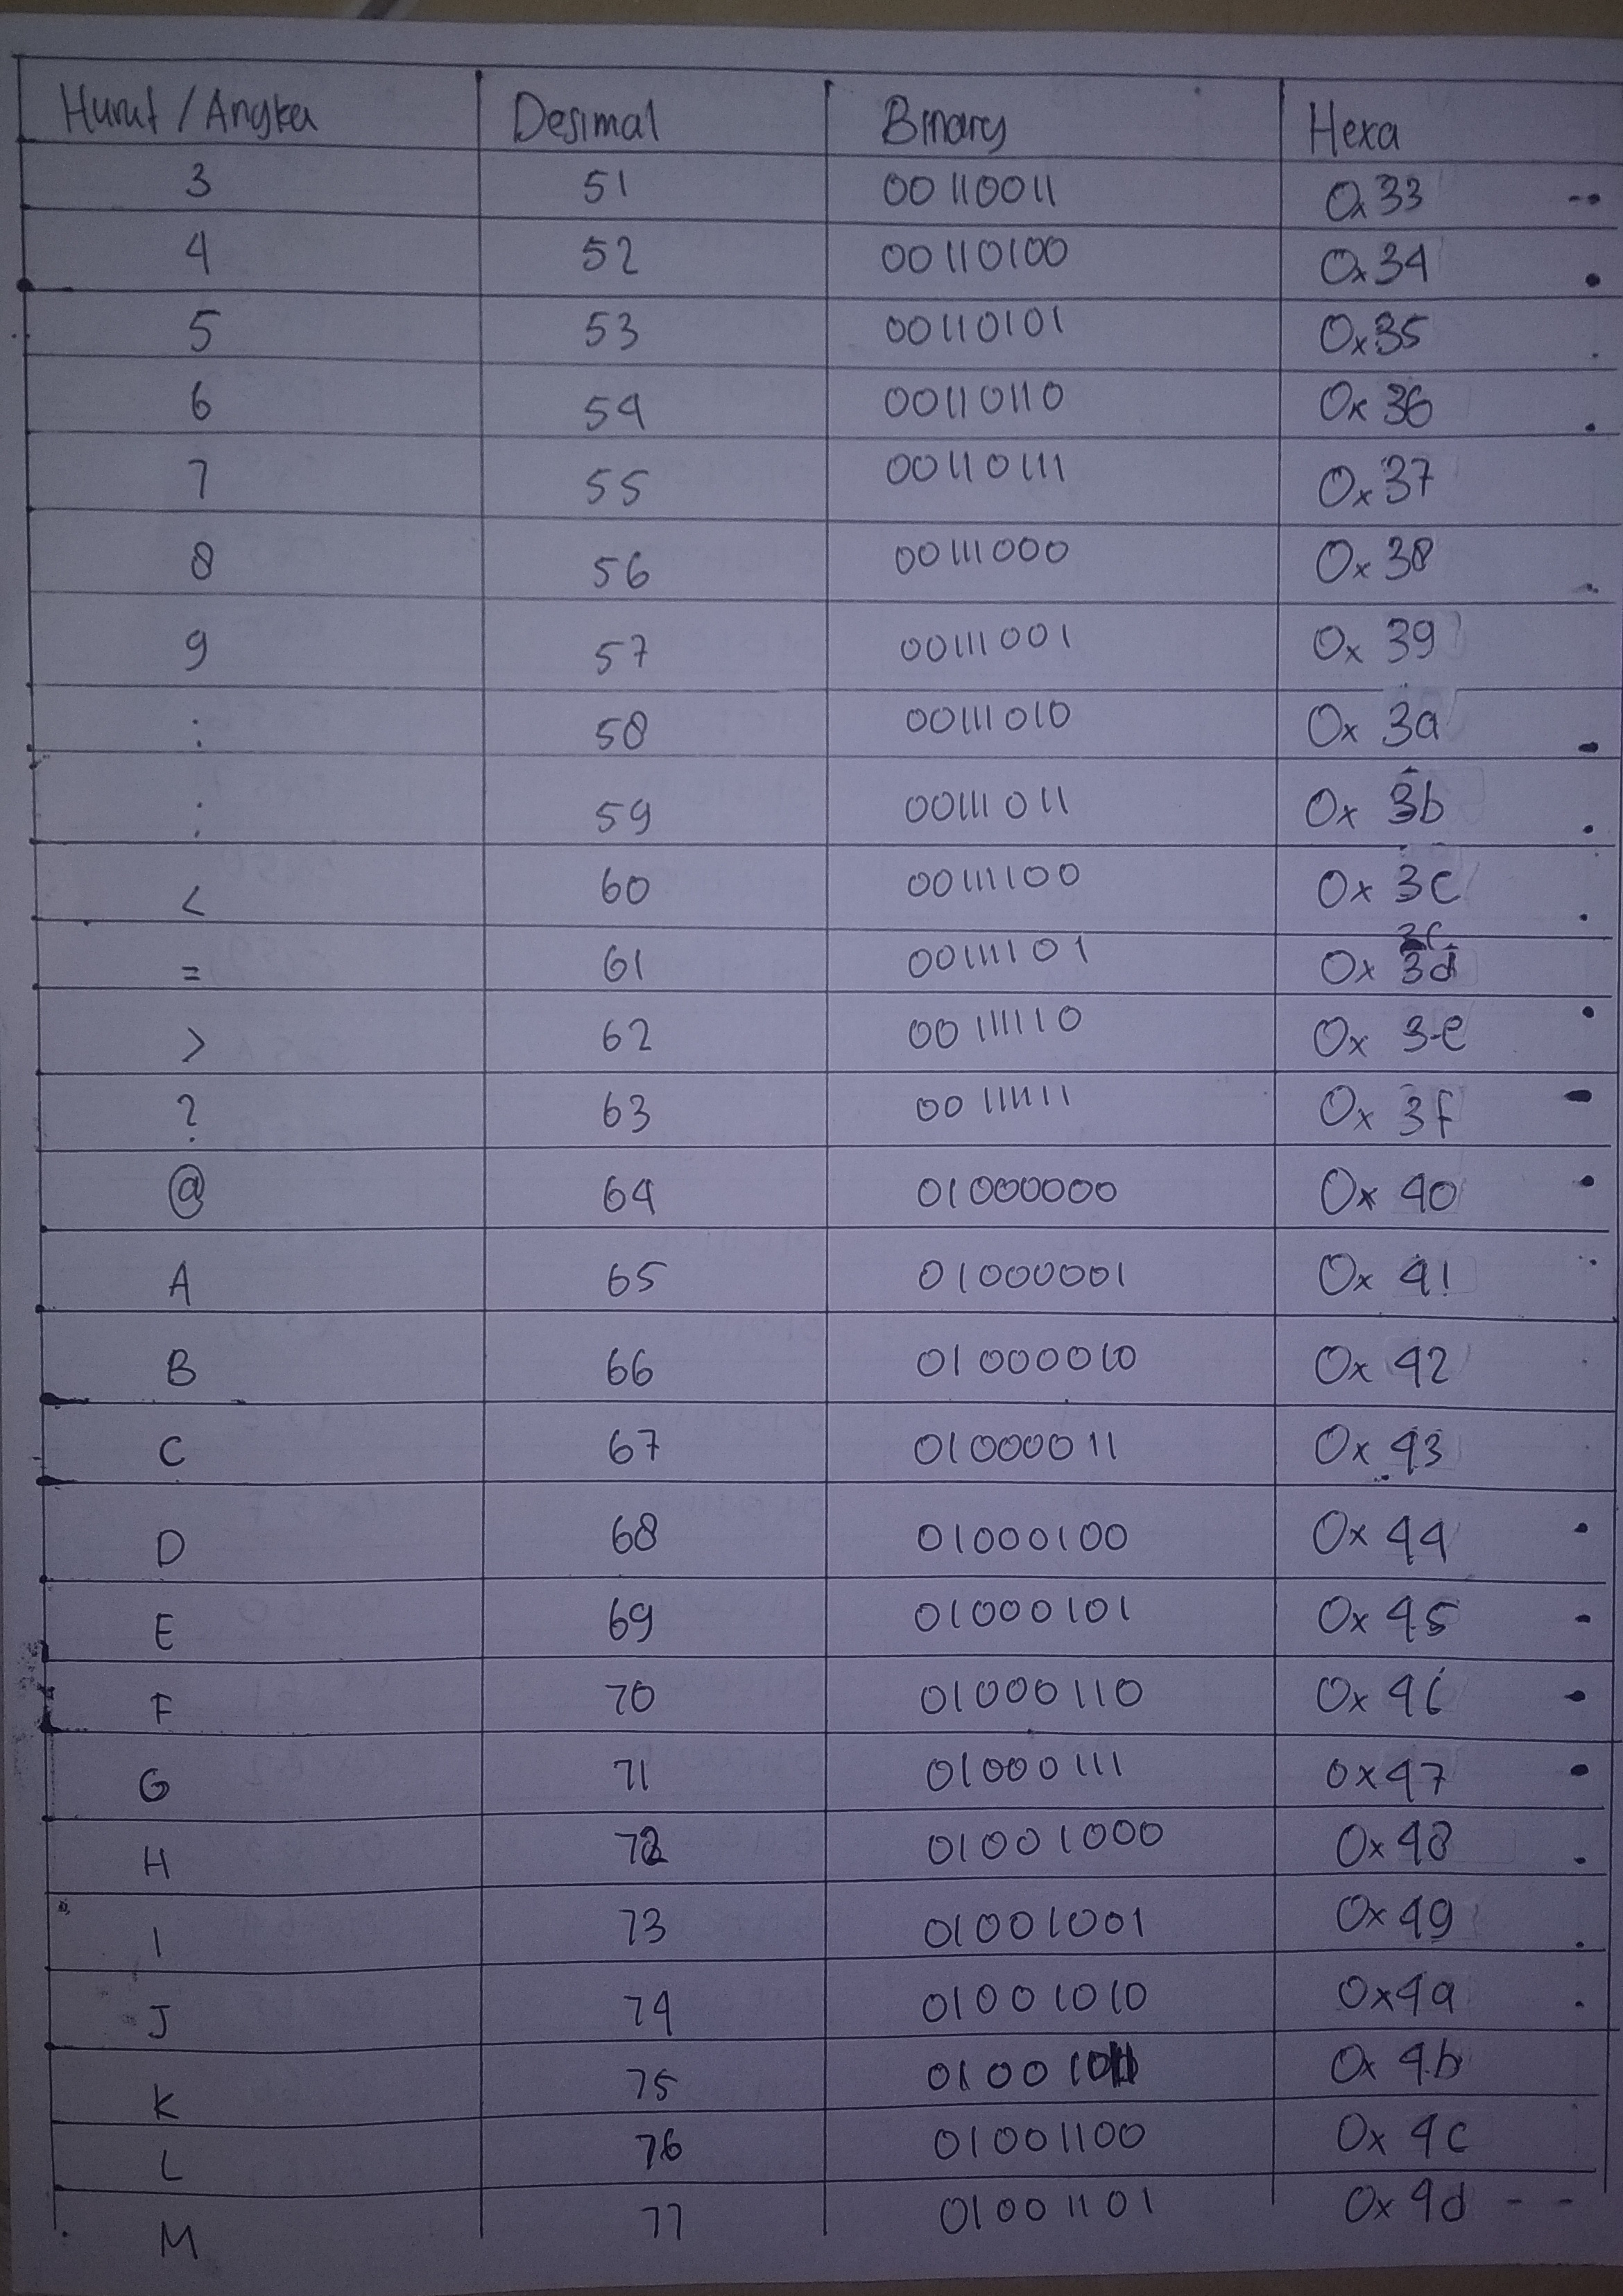 Huruf / Angka Desimal Binary Hexa
3 51 00110011 0x33
4 52 00110100 0x34
5 53 00110101 0x35
6 54 00110110 0x36
7 55 00110111 0x37
8 56 00111000 0x38
9 57 00111001 0x39
: 58 00111010 0x3a
; 59 00111011 0x3b
< 60 00111100 0x3c
= 61 00111101 0x3d
> 62 00111110 0x3e
? 63 00111111 0x3f
@ 64 01000000 0x40
A 65 01000001 0x41
B 66 01000010 0x42
C 67 01000011 0x43
D 68 01000100 0x44
E 69 01000101 0x45
F 70 01000110 0x46
G 71 01000111 0x47
H 72 01001000 0x48
I 73 01001001 0x49
J 74 01001010 0x4a
K 75 01001011 0x4b
L 76 01001100 0x4c
M 77 01001101 0x4d